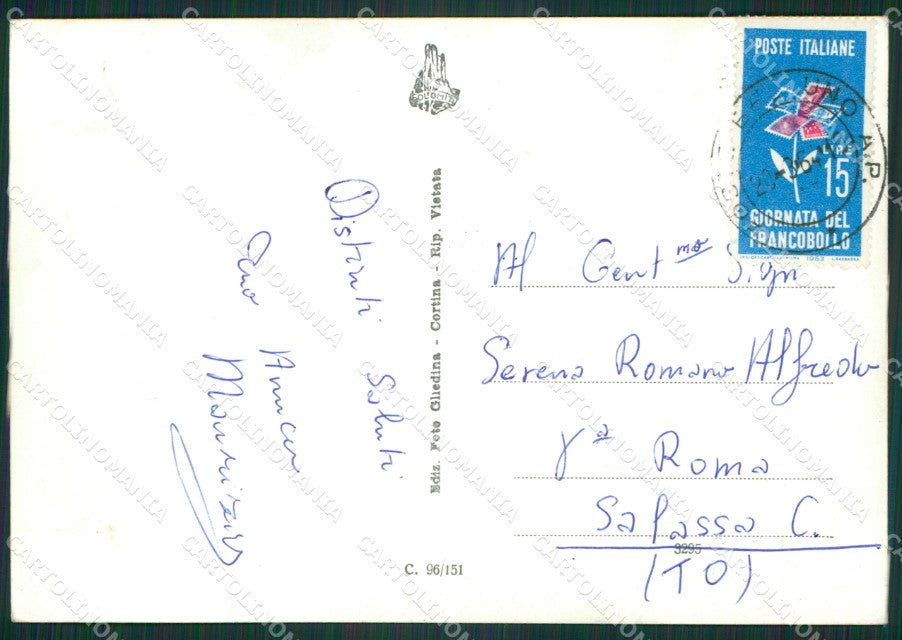 Distinti Saluti
Suo
Amico
Maurizio
DOLOMITI
Ediz. Foto Ghedina - Cortina - Rip. Vietata
C. 96/151
POSTE ITALIANE
LIRE
15
GIORNATA DEL
FRANCOBOLLO
1963
A.P.
Al Gent mo Sign
Serena Romano Alfredo
Va Roma
Salassa C.
3295
(TO)
CARTOLINOMANIA